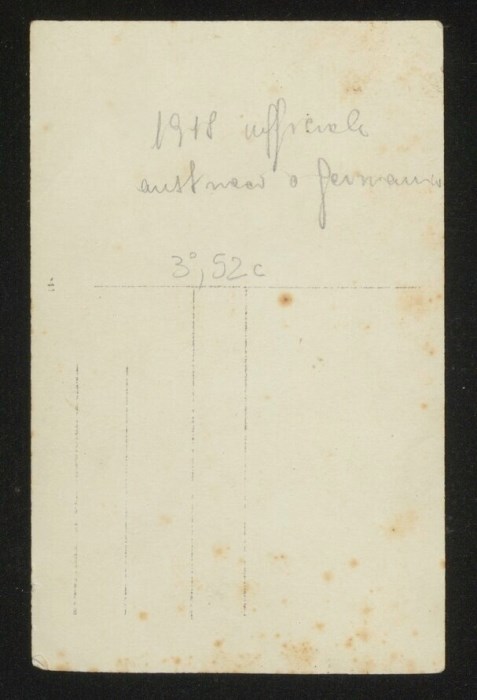 1918 ufficiale
austriaco o germanico
3°, 52c